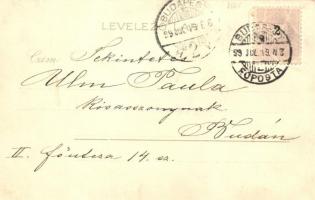 LEVELEZ
BUDAPEST
99 JUL 15 É 6
BUDAPEST
99 JUL 15 N 3
FŐPOSTA
Czím: Tekintetes
Ulm Paula
kisasszonynak
Budán
II. főutcza 14. sz.